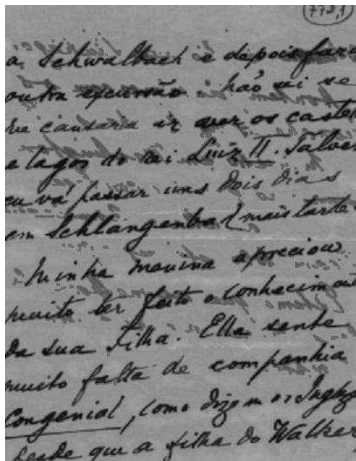 a Schwalbach e depois faz
outra excursão não sei se
me causaria ir ver os caste
e lagos do rei Luiz II. Talvez
eu vá passar uns dois dias
em Schlangenbad mais tarde
Minha menina apreciou
muito ter feito o conhecim
da sua filha. Ella sente
muito falta de companhia
congenial, como dizem os Ingle
desde que a filha do Walker